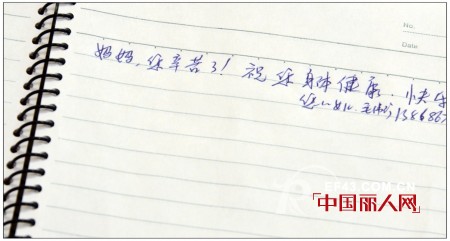 No.
Date
妈妈，您辛苦了！祝您身体健康．快乐
您的女儿
中国丽人网